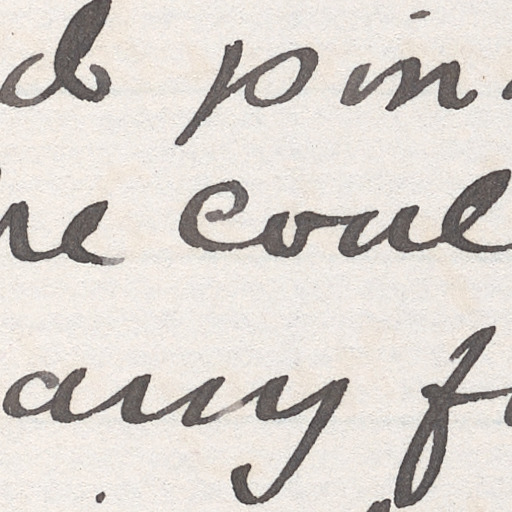 pin
he coul
any f